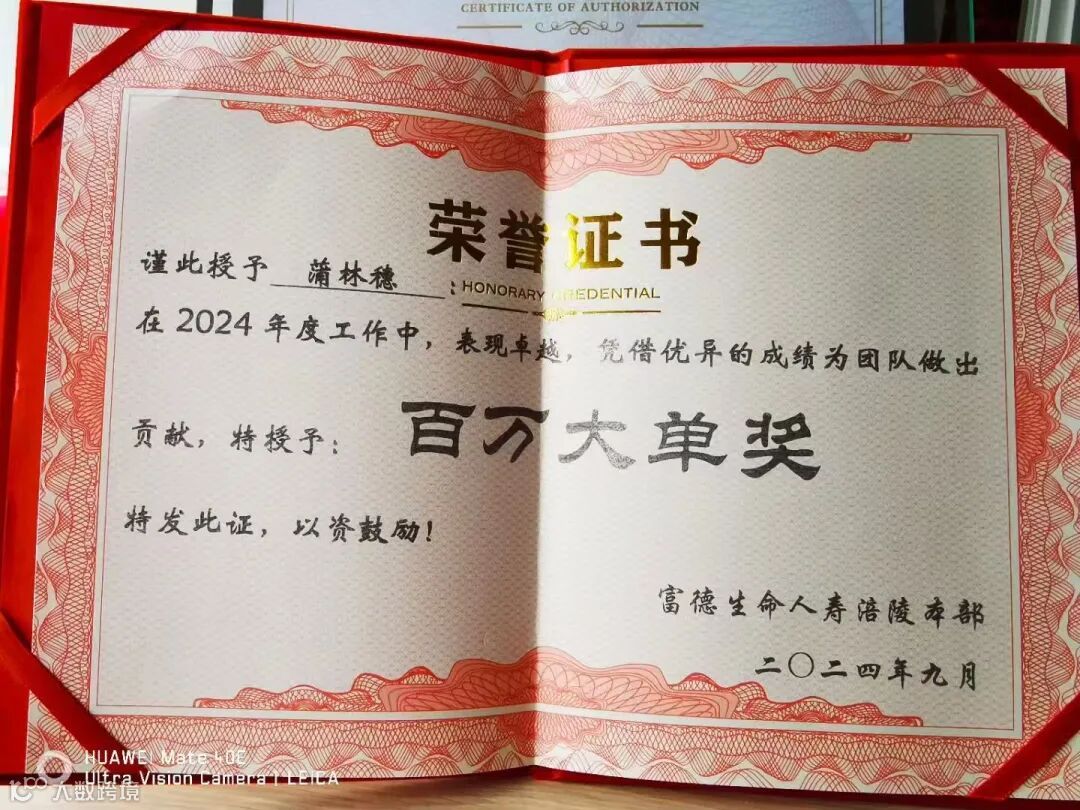 CERTIFICATE OF AUTHORIZATION
荣誉证书
HONORARY CREDENTIAL
谨此授予 蒲林穗 :
在 2024 年度工作中，表现卓越，凭借优异的成绩为团队做出
贡献，特授予： 百万大单奖
特发此证，以资鼓励！
富德生命人寿涪陵本部
二〇二四年九月
HUAWEI Mate 40E
Ultra Vision Camera | LEICA
大数跨境